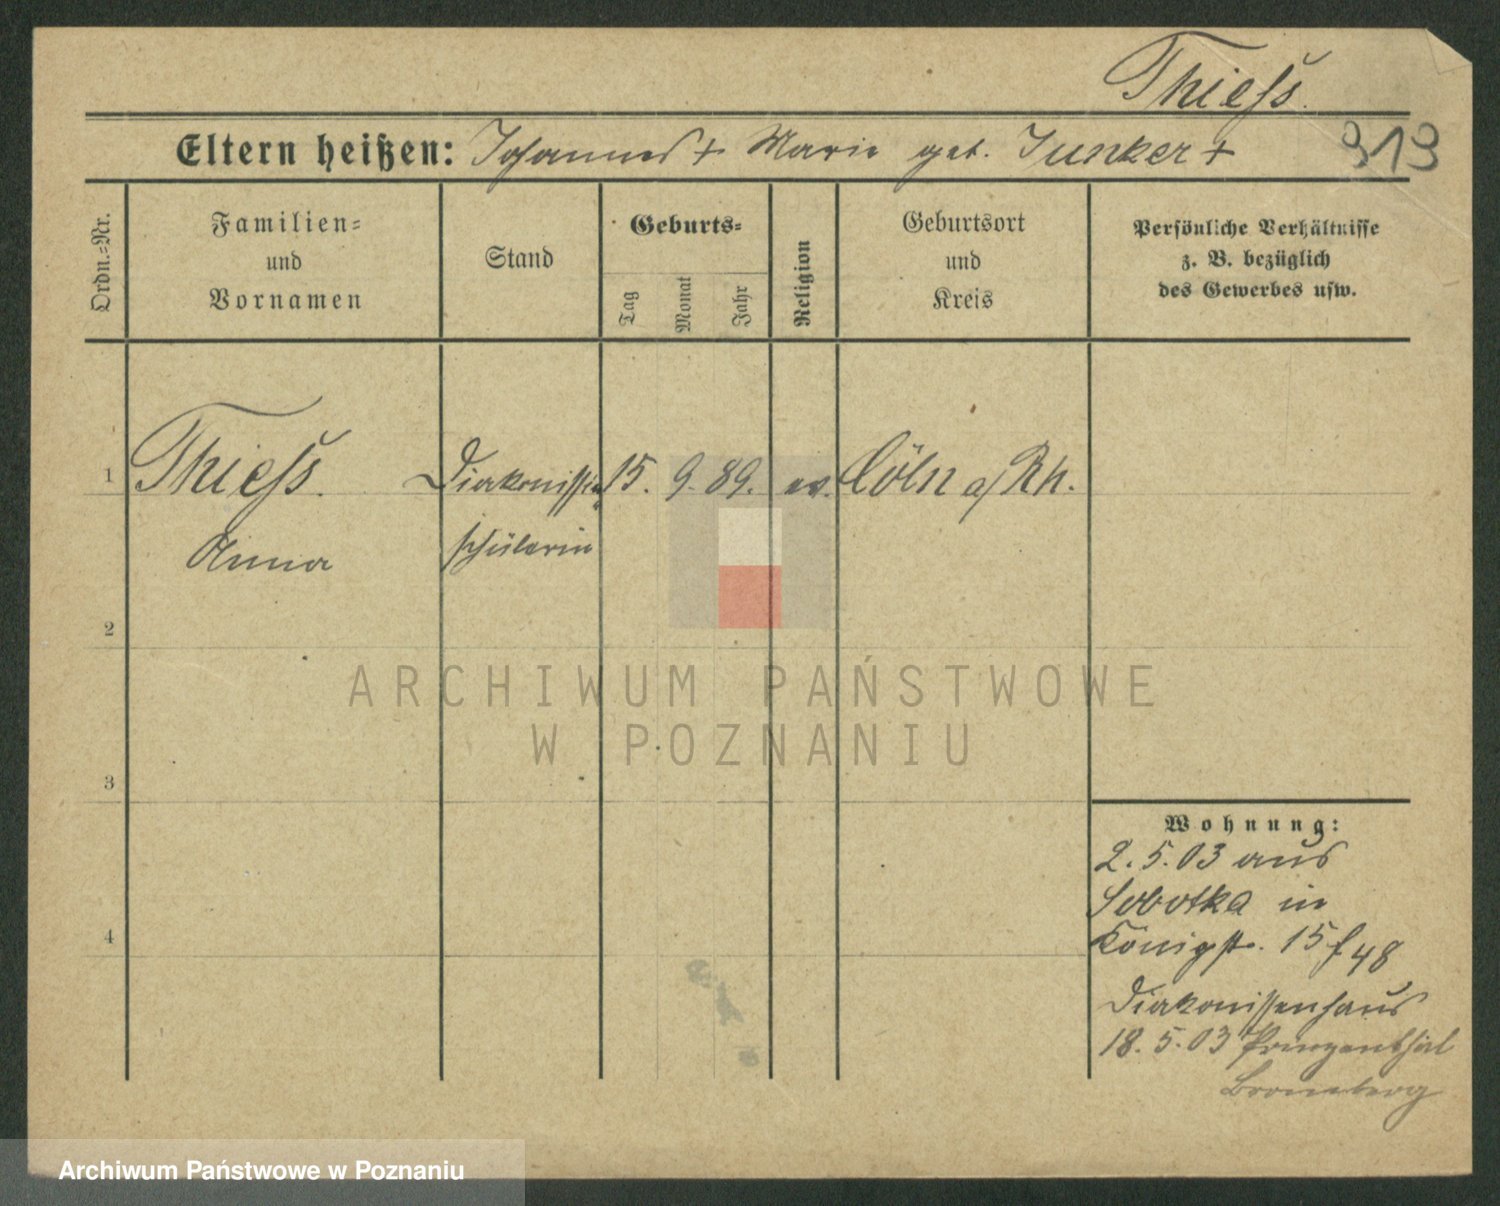 Thieſs.
Eltern heißen: Johannes + Marie geb. Junker +
313
Ordn.-Nr.
Familien-
und
Vornamen
Stand
Geburts-
Tag
Monat
Jahr
Religion
Geburtsort
und
Kreis
Persönliche Verhältnisse
z. B. bezüglich
des Gewerbes usw.
1 Thieſs. Diakonissen 15. 9. 89. ev. Cöln a/Rh.
Anna schülerin
2
ARCHIWUM PAŃSTWOWE
W POZNANIU
3
Wohnung:
2. 5. 03 aus
Sobotka in
Königstr. 15 f 48
4
Diakonissenhaus
18. 5. 03 Prinzenthal
Bromberg
Archiwum Państwowe w Poznaniu